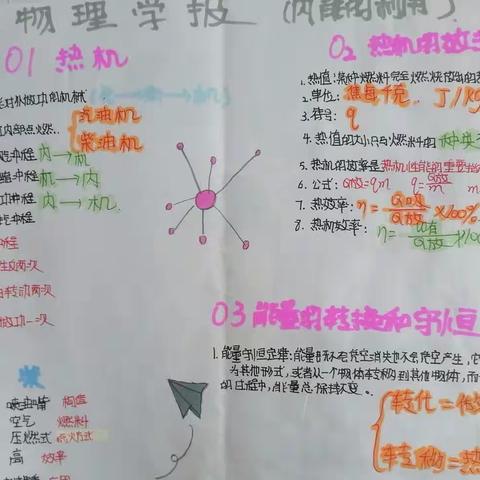 物理学报 (内能的利用)
01 热机
能对外做功的机械
汽油机
内部点燃
柴油机
冲程 内→机
冲程 机→内
冲程 内→机
冲程
冲程
两次
转动两次
做功一次
柴
喷油嘴 构造
空气 燃料
压燃式 点火方式
高 效率
02 热机的效率
1. 热值:某种燃料完全燃烧放出的
2. 单位: 焦每千克 J/kg
3. 符号: q
4. 热值的大小只与燃料的 种类
5. 热机的效率是热机性能的重要指
6. 公式: Q放=qm q=Q放/m m
7. 热效率: η=Q吸/Q放×100%
8. 热机效率: η=W有/Q放×100
03 能量的转换和守恒
1. 能量守恒定律:能量既不会凭空消失也不会凭空产生,它
为其他形式,或者从一个物体转移到其他物体,而
的过程中,能量总保持不变。
转化=做
转移=热